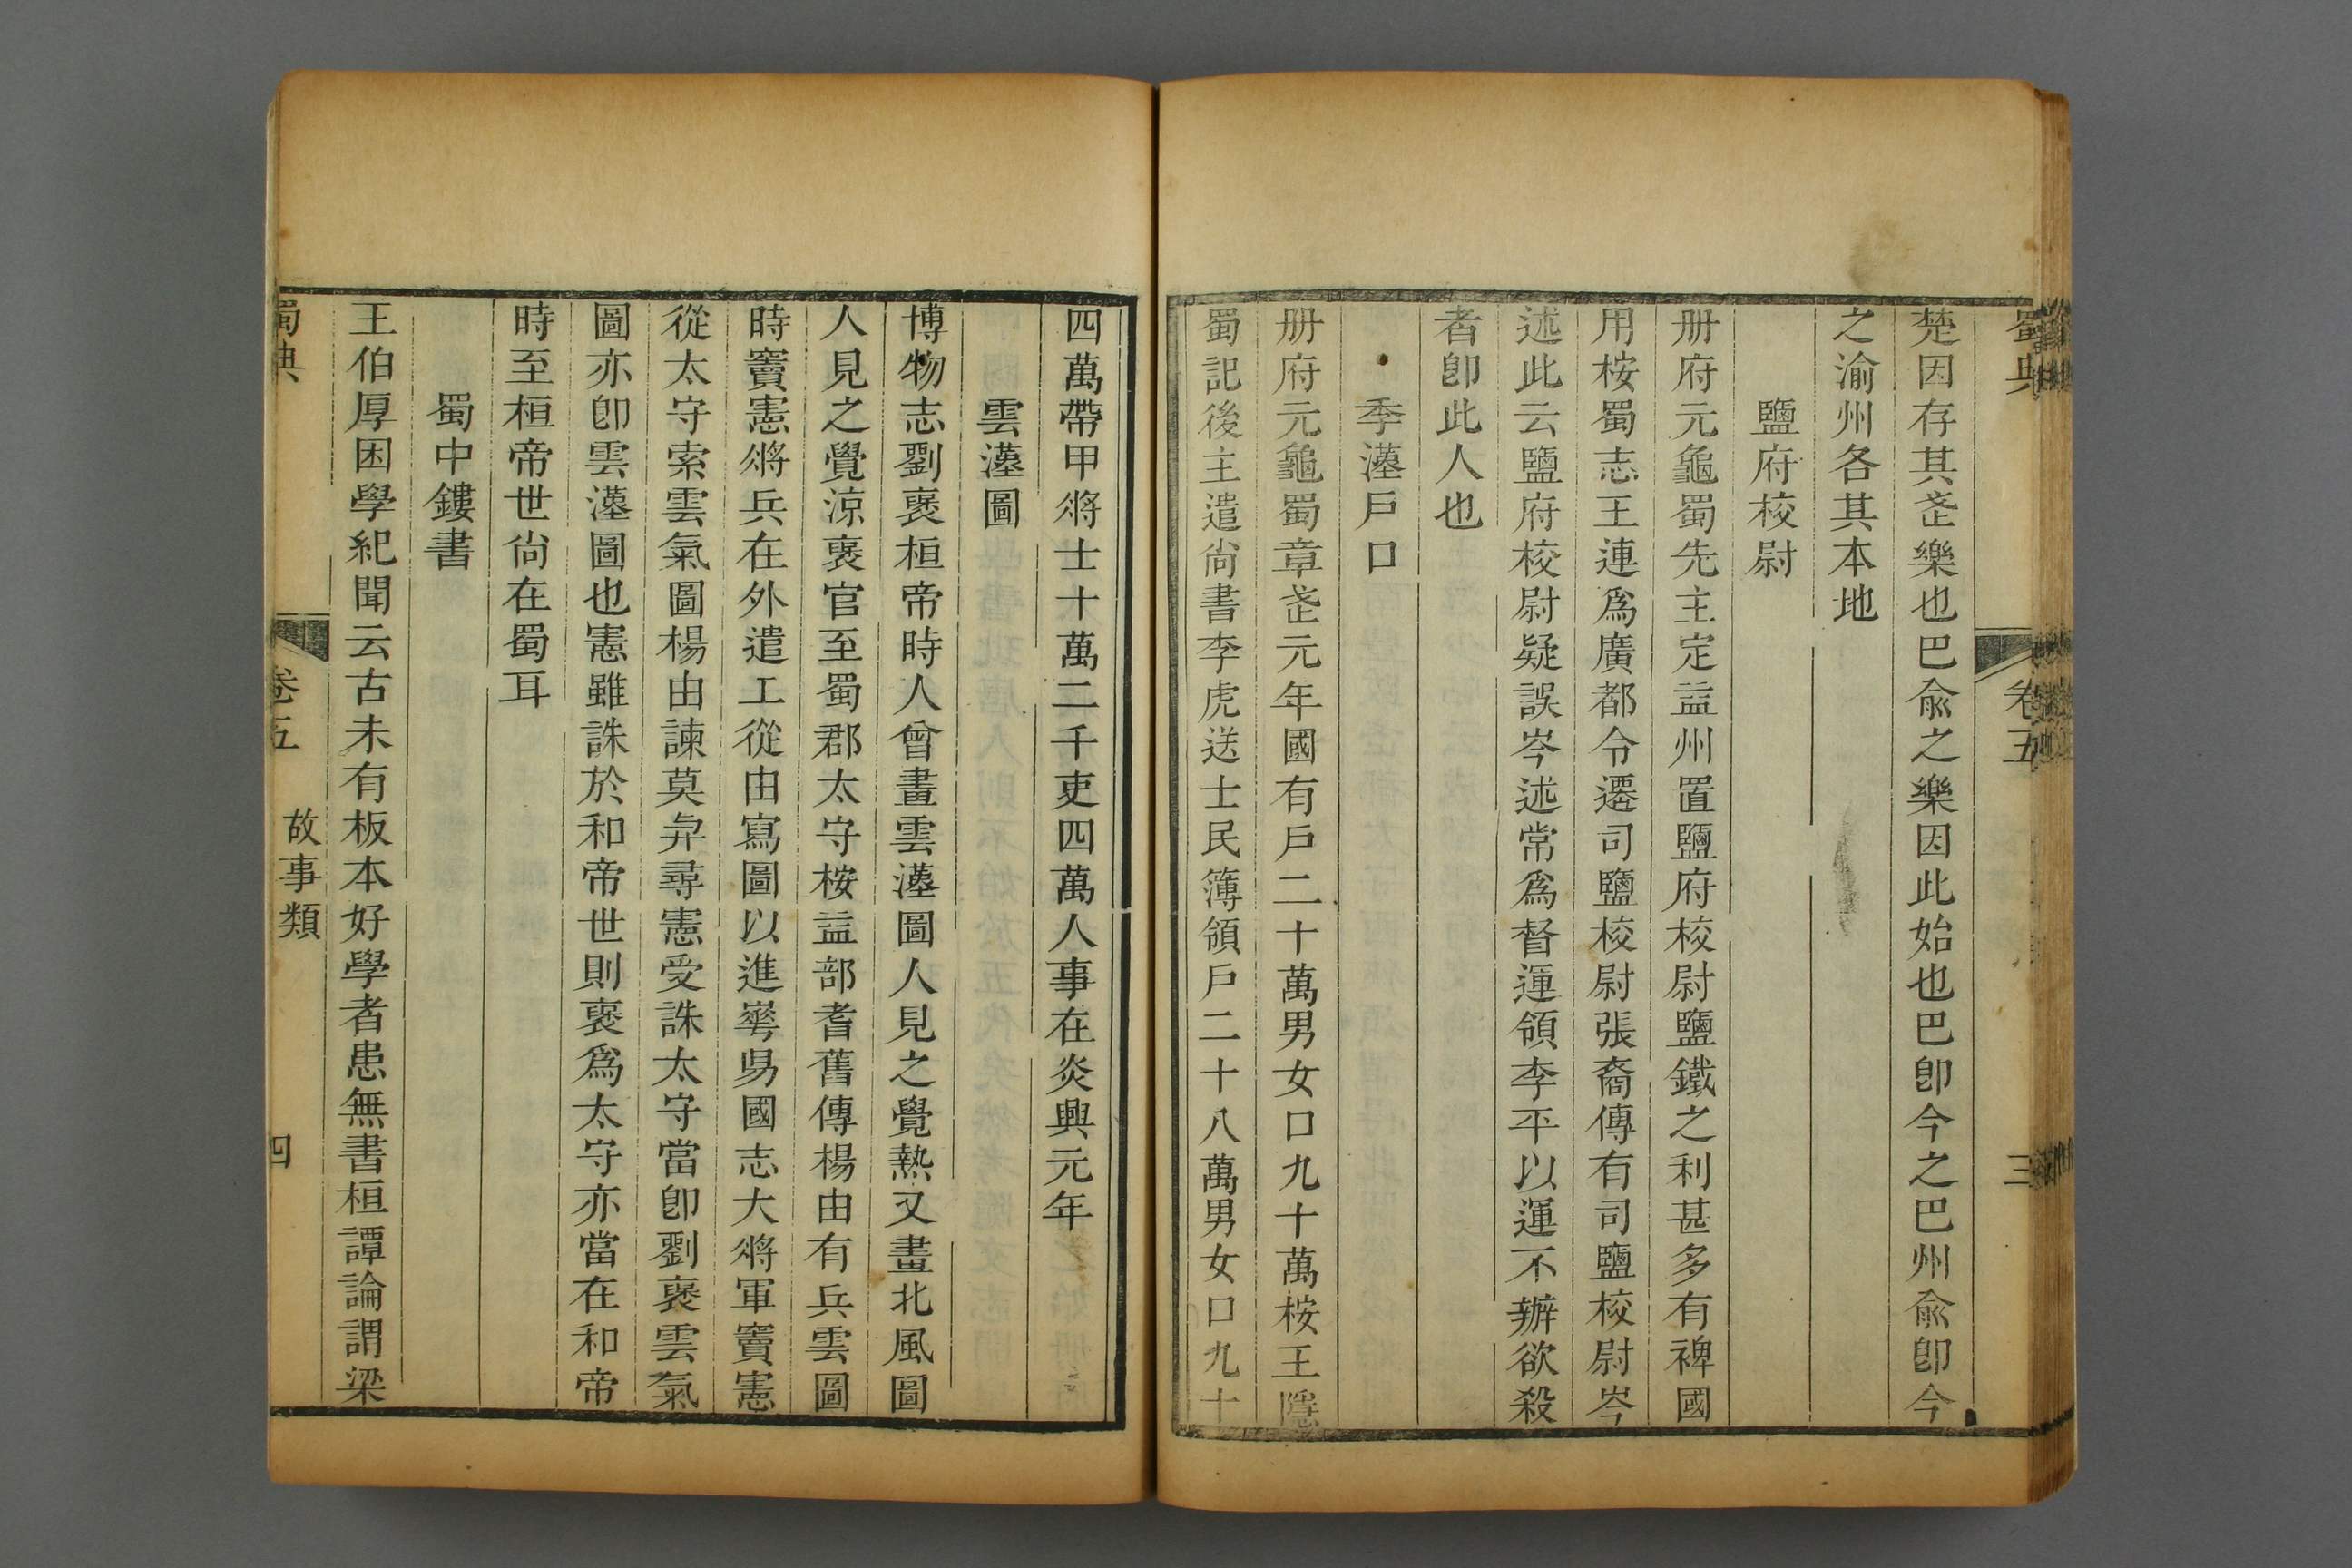 蜀典
卷五
三
楚因存其𢍰樂也巴俞之樂因此始也巴卽今之巴州俞卽今
之渝州各其本地
鹽府校尉
册府元龜蜀先主定益州置鹽府校尉鹽鐵之利甚多有裨國
用桉蜀志王連爲廣都令遷司鹽校尉張裔傳有司鹽校尉岑
述此云鹽府校尉疑誤岑述常爲督運領李平以運不辦欲殺
者卽此人也
季漢戶口
册府元龜蜀章武元年國有戶二十萬男女口九十萬桉王隱
蜀記後主遣尙書李虎送士民簿領戶二十八萬男女口九十
四萬帶甲將士十萬二千吏四萬人事在炎興元年
雲漢圖
博物志劉褒桓帝時人曾畫雲漢圖人見之覺熱又畫北風圖
人見之覺涼褒官至蜀郡太守桉益部耆舊傳楊由有兵雲圖
時竇憲將兵在外遣工從由寫圖以進華昜國志大將軍竇憲
從太守索雲氣圖楊由諫莫與尋憲受誅太守當卽劉褒雲氣
圖亦卽雲漢圖也憲雖誅於和帝世則褒爲太守亦當在和帝
時至桓帝世尙在蜀耳
蜀中鏤書
王伯厚困學紀聞云古未有板本好學者患無書桓譚論謂梁
蜀典
卷五
故事類
四